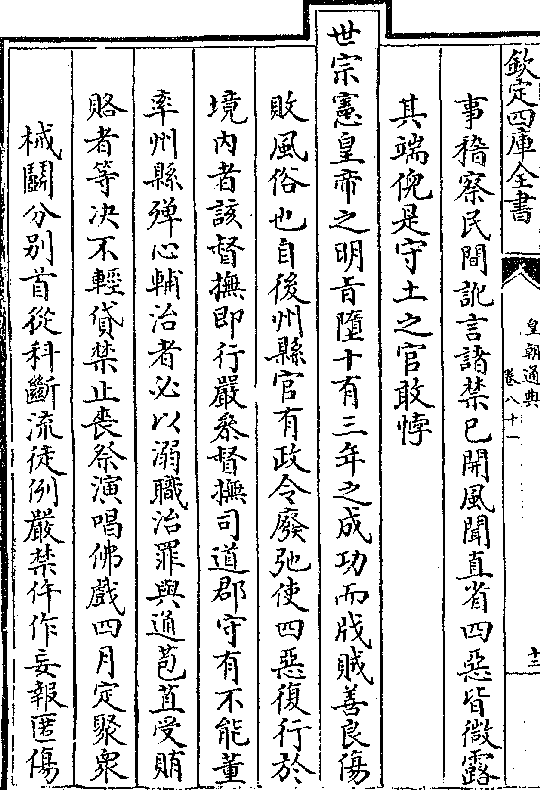 欽定四庫全書
皇朝通典
卷八十一
十三
事稽察民間訛言諸禁已開風聞直省四惡皆微露
其端倪是守土之官敢悖
世宗憲皇帝之明旨隳十有三年之成功而戕賊善良傷
敗風俗也自後州縣官有政令廢弛使四惡復行於
境內者該督撫即行嚴叅督撫司道郡守有不能董
率州縣殫心輔治者必以溺職治罪與通苞苴受賄
賂者等决不輕貸禁止喪祭演唱佛戲四月定聚衆
械鬭分别首從科斷流徒例嚴禁仵作妄報匿傷